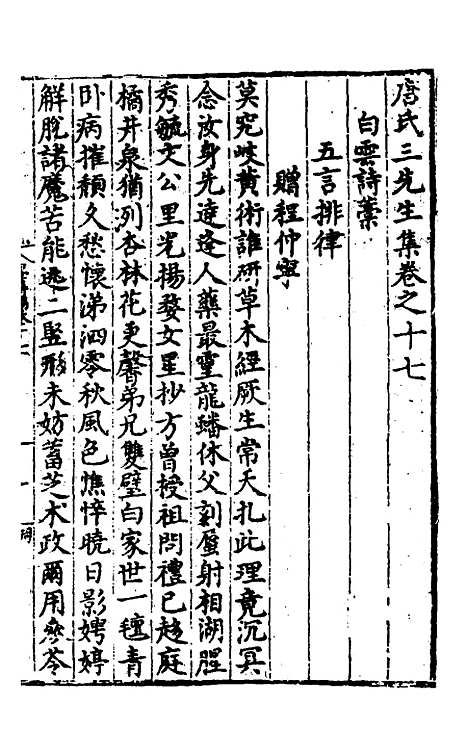 唐氏三先生集卷之十七
白雲詩藁
五言排律
贈程仲寧
莫究岐黄術誰研草木經厥生常夭扎此理竟沉冥
念汝身先達逢人藥最靈龍蟠休父刻蜃射相湖腥
秀毓文公里光揚婺女星抄方曾授祖問禮已趍庭
橘井泉猶列杏林花更馨弟兄雙璧白家世一氊青
卧病摧頽久愁懷涕泗零秋風色憔悴曉日影娉婷
解脫諸魔苦能逃二竪形未妨蓄芝术政爾用參苓